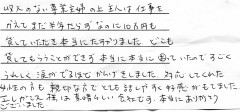 収入のない専業主婦の主人は仕事を
かえてまだ半年たらずなのに10万円も
貸していただき本当にたすかりました どこも
貸してもらうことができず本当に本当に困っていたのですごく
うれしく涙がでるほどがいをしました。対応してくれた
女性の方も親切な方でとても話しやすく好感がもてました
エレガンス様は素晴らしい会社です。本当にありがとう
ございました